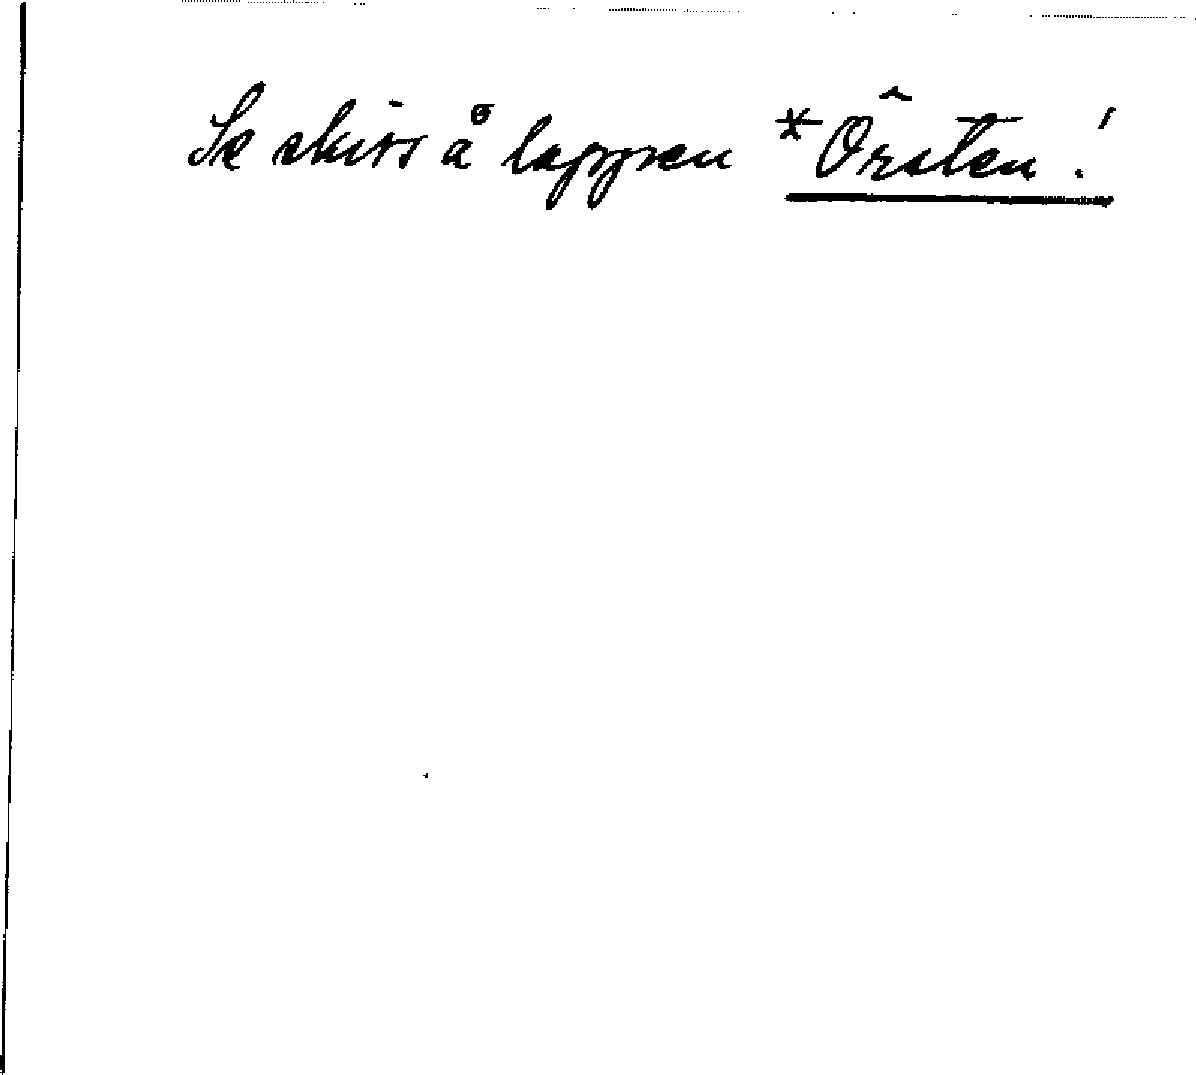 Se skiss å lappen *Örsten!